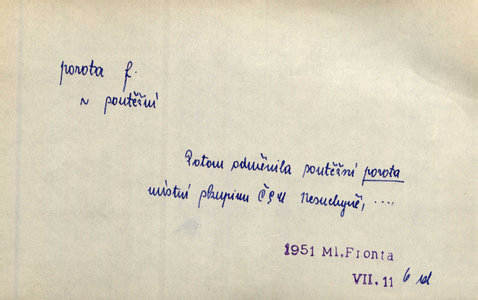 porota f.
~ soutěžní
Potom odměnila soutěžní porota
místní skupinu ČSM Nesuchyně, ....
1951 Ml.Fronta
VII. 11 6